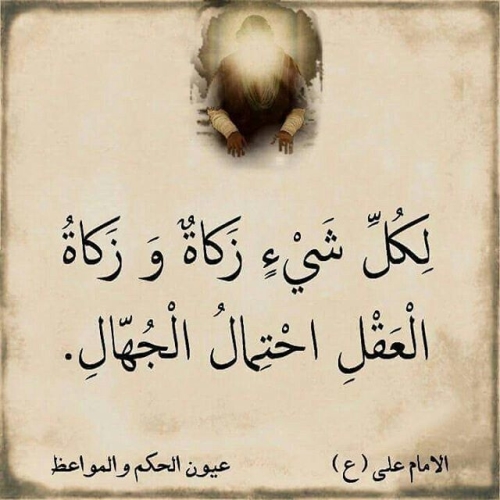 لِكُلِّ شَيْءٍ زَكاةٌ وَ زَكاةُ
الْعَقْلِ احْتِمالُ الْجُهّالِ.
الامام علی (ع) عیون الحکم والمواعظ